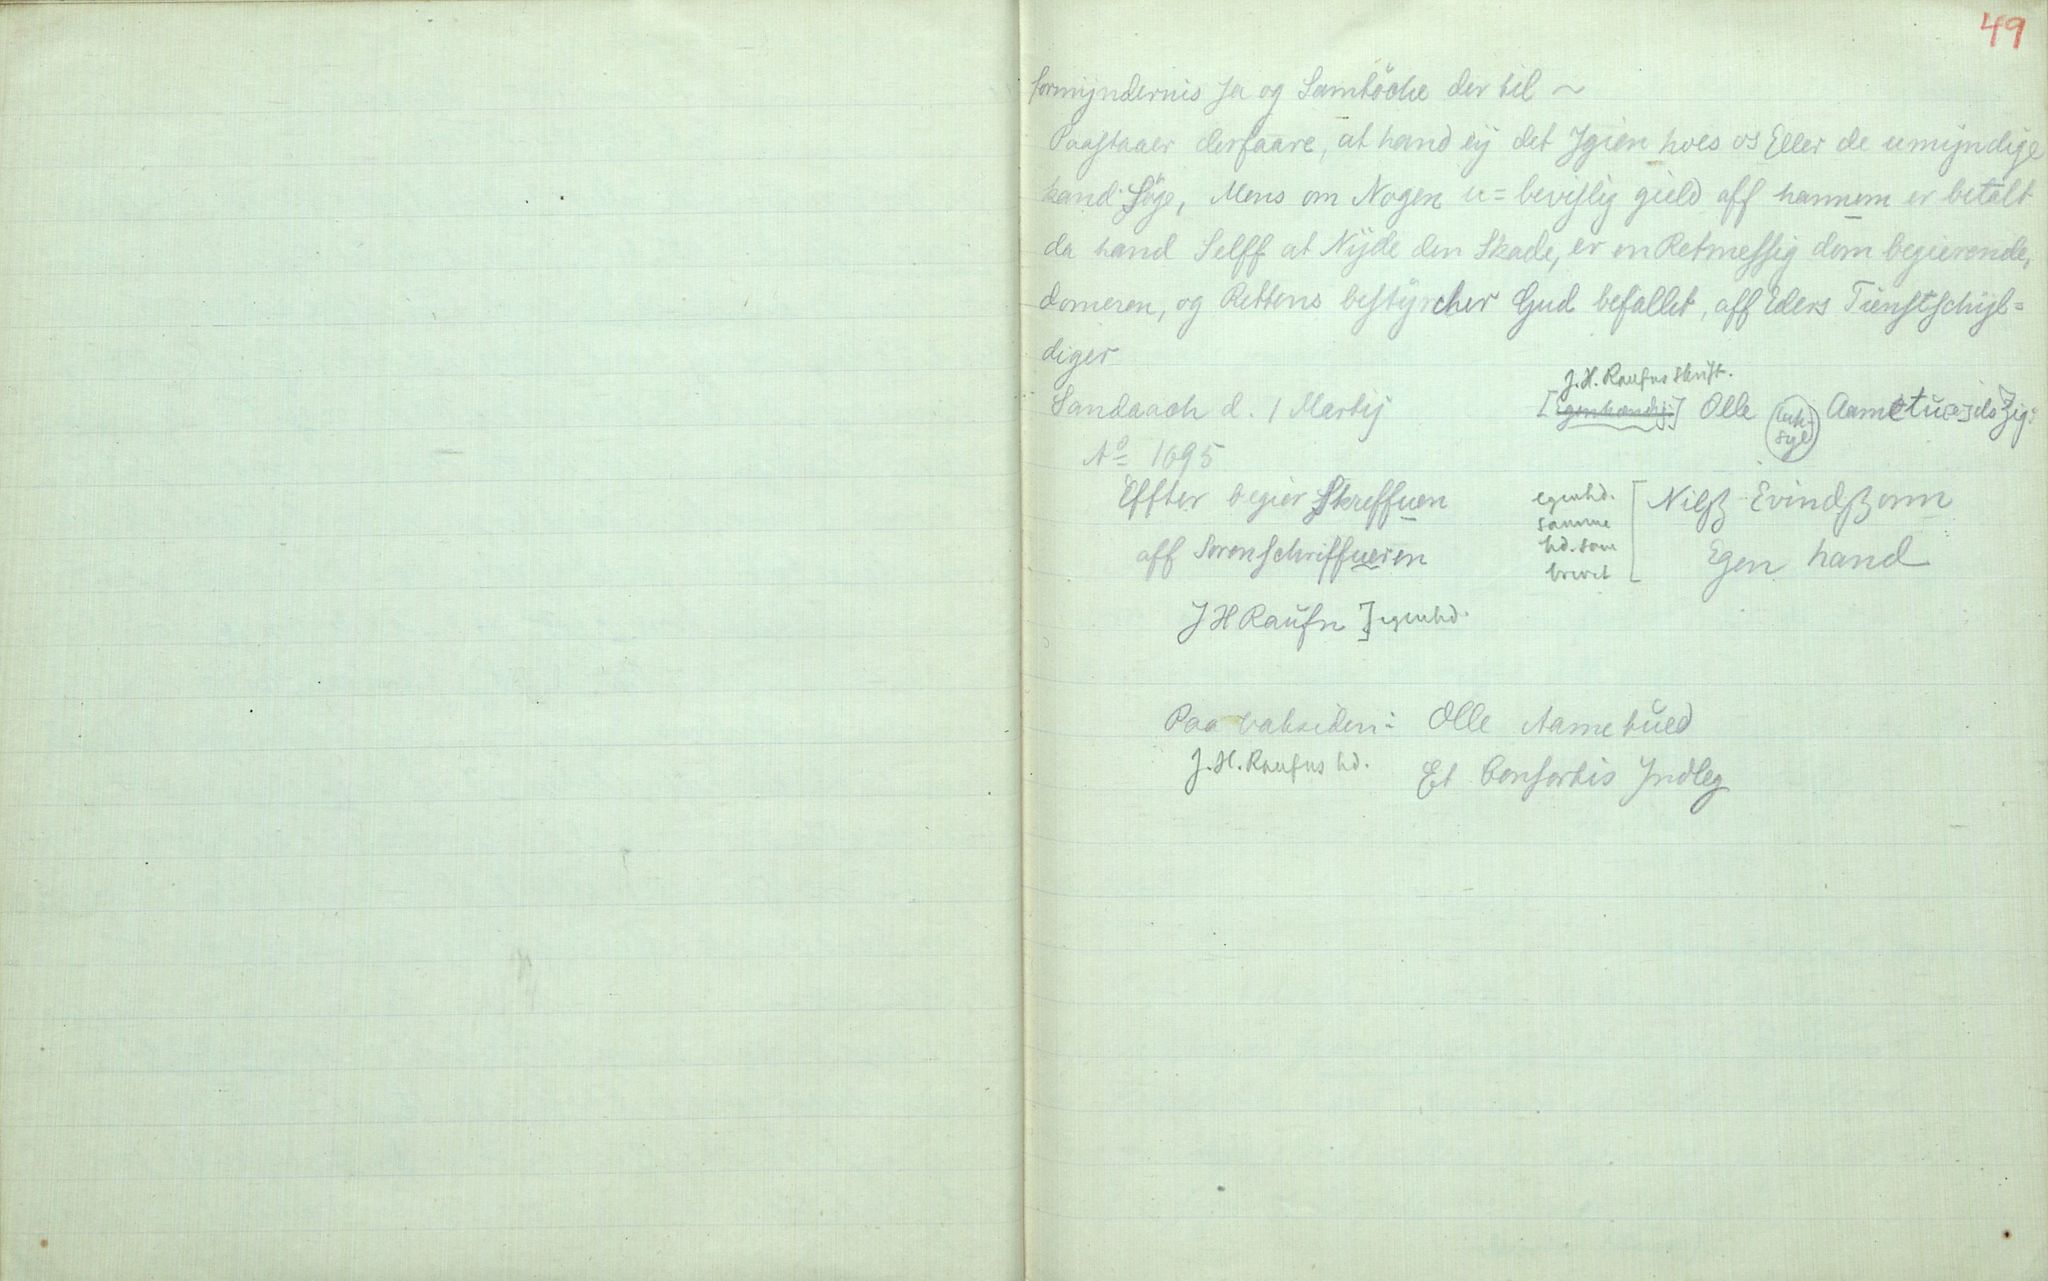 49
formyndernis Ja og Samtöche der til ~
Paastaaer derfaare, at hand eÿ det Jgien hoes os Eller de umÿndige
kand Söge, Mens om Nogen u= bevislig gield aff hannem er betalt
da hand Selff at Nÿde den Skade, er en Retmessig dom begierende,
domeren, og Rettens bestÿrcher Gud befallet, aff Eders Tienstschÿl=
diger
J. H. Raufns skrift.
Sandaach d. 1 Martij [Egenhændig] Olle Aametue
Aº 1695
Effter begier Skreffuen
aff Sorenschriffueren
egenhd.
samme
hd. som
brevet
Nilsz Evindszonn
Egen hand
J H Raufn ] egenhd.
Paa baksiden: Olle Aametued
J. H. Raufns hd. Et Consortis Jndleg